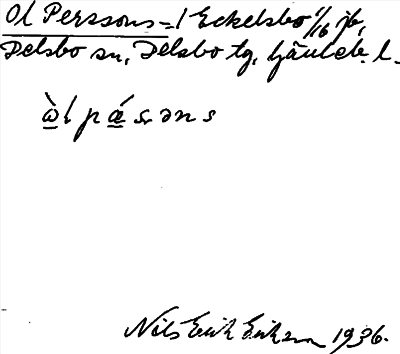 Ol Perssons = 1 Eckelsbo 1/16 jb,
Delsbo sn, Delsbo tg,
ὼ̲l pǽ̲səns
Nils Erik Erikson 1936.